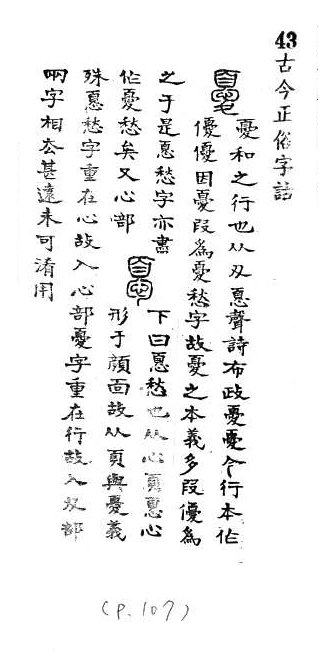 43 古今正俗字詁
憂和之行也从夊𢝊聲詩布政憂憂今行本作
優優因憂叚為憂愁字故憂之本義多叚優為
之于是𢝊愁字亦盡
作憂愁矣又心部
下曰𢝊愁也从心頁𢝊心
形于顏面故从頁與憂義
殊𢝊愁字重在心故入心部憂字重在行故入夊部
兩字相去甚遠未可淆用
(P.107)